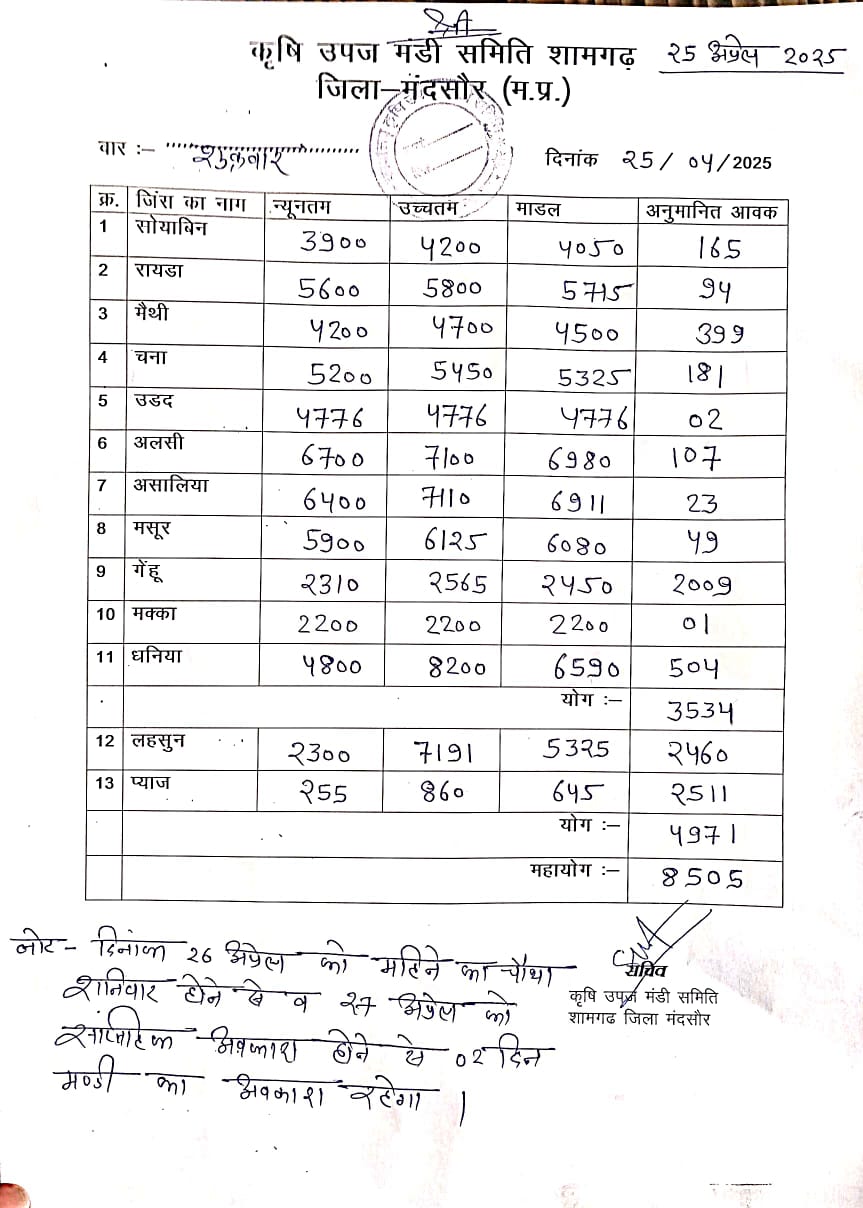 श्री
कृषि उपज मंडी समिति शामगढ़ 25 अप्रेल 2025
जिला–मंदसौर (म.प्र.)
वार :– शुक्रवार दिनांक 25/04/2025
क्र. जिंस का नाग न्यूनतम उच्चतम माडल अनुमानित आवक
1 सोयाबिन 3900 4200 4050 165
2 रायडा 5600 5800 5715 94
3 मैथी 4200 4700 4500 399
4 चना 5200 5450 5325 181
5 उडद 4776 4776 4776 02
6 अलसी 6700 7100 6980 107
7 असालिया 6400 7110 6911 23
8 मसूर 5900 6125 6080 49
9 गेंहू 2310 2565 2450 2009
10 मक्का 2200 2200 2200 01
11 धनिया 4800 8200 6590 504
योग :– 3534
12 लहसुन 2300 7191 5325 2460
13 प्याज 255 860 645 2511
योग :– 4971
महायोग :– 8505
नोट – दिनांक 26 अप्रेल को महिने का चौथा
शनिवार होने से व 27 अप्रेल को
साप्ताहिक अवकाश होने से 02 दिन
मण्डी का अवकाश रहेगा |
सचिव
कृषि उपज मंडी समिति
शामगढ जिला मंदसौर